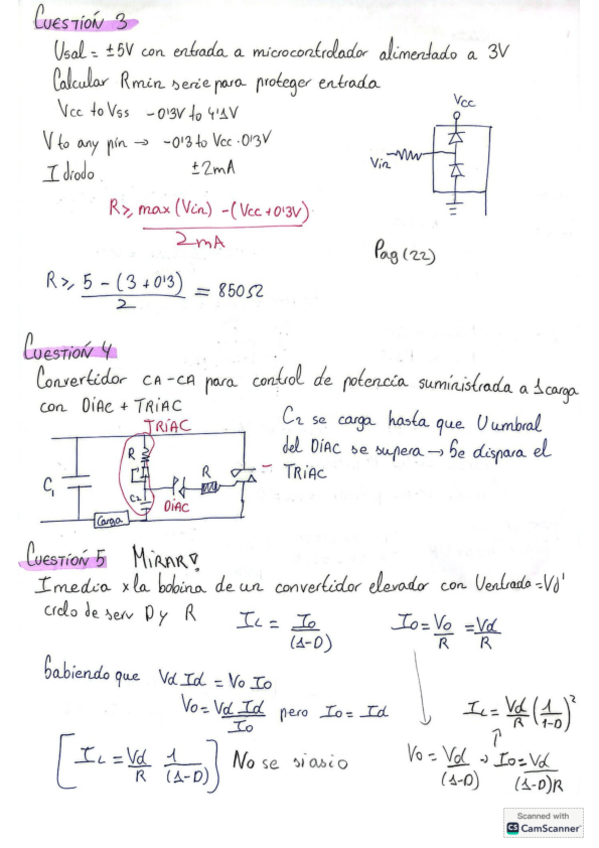 CUESTIÓN 3
Usal = ±5V con entrada a microcontrolador alimentado a 3V
Calcular Rmin serie para proteger entrada
Vcc to Vss -0'3V to 4'1V
V to any pin → -0'3 to Vcc·0'3V
I diodo ±2mA
Vcc
Vin
R ≥ max(Vin) - (Vcc + 0'3V)
2mA
Pag (22)
R ≥ 5 - (3 + 0'3) = 850Ω
2
CUESTIÓN 4
Convertidor CA-CA para control de potencia suministrada a 1 carga
con DIAC + TRIAC
TRIAC
C2 se carga hasta que U umbral
del DIAC se supera → Se dispara el
TRIAC
R
R
C1
C2
DIAC
Carga
CUESTIÓN 5 MIRAR!
I media x la bobina de un convertidor elevador con Uentrada = Vd'
ciclo de serv D y R
IL = Io
(1-D)
Io = Vo = Vd
R R
Sabiendo que Vd Id = Vo Io
Vo = Vd Id pero Io = Id
Io
IL = Vd (1)²
R 1-D
[IL = Vd 1] No se si asio
R (1-D)
Vo = Vd → Io = Vd
(1-D) (1-D)R
Scanned with
CS CamScanner